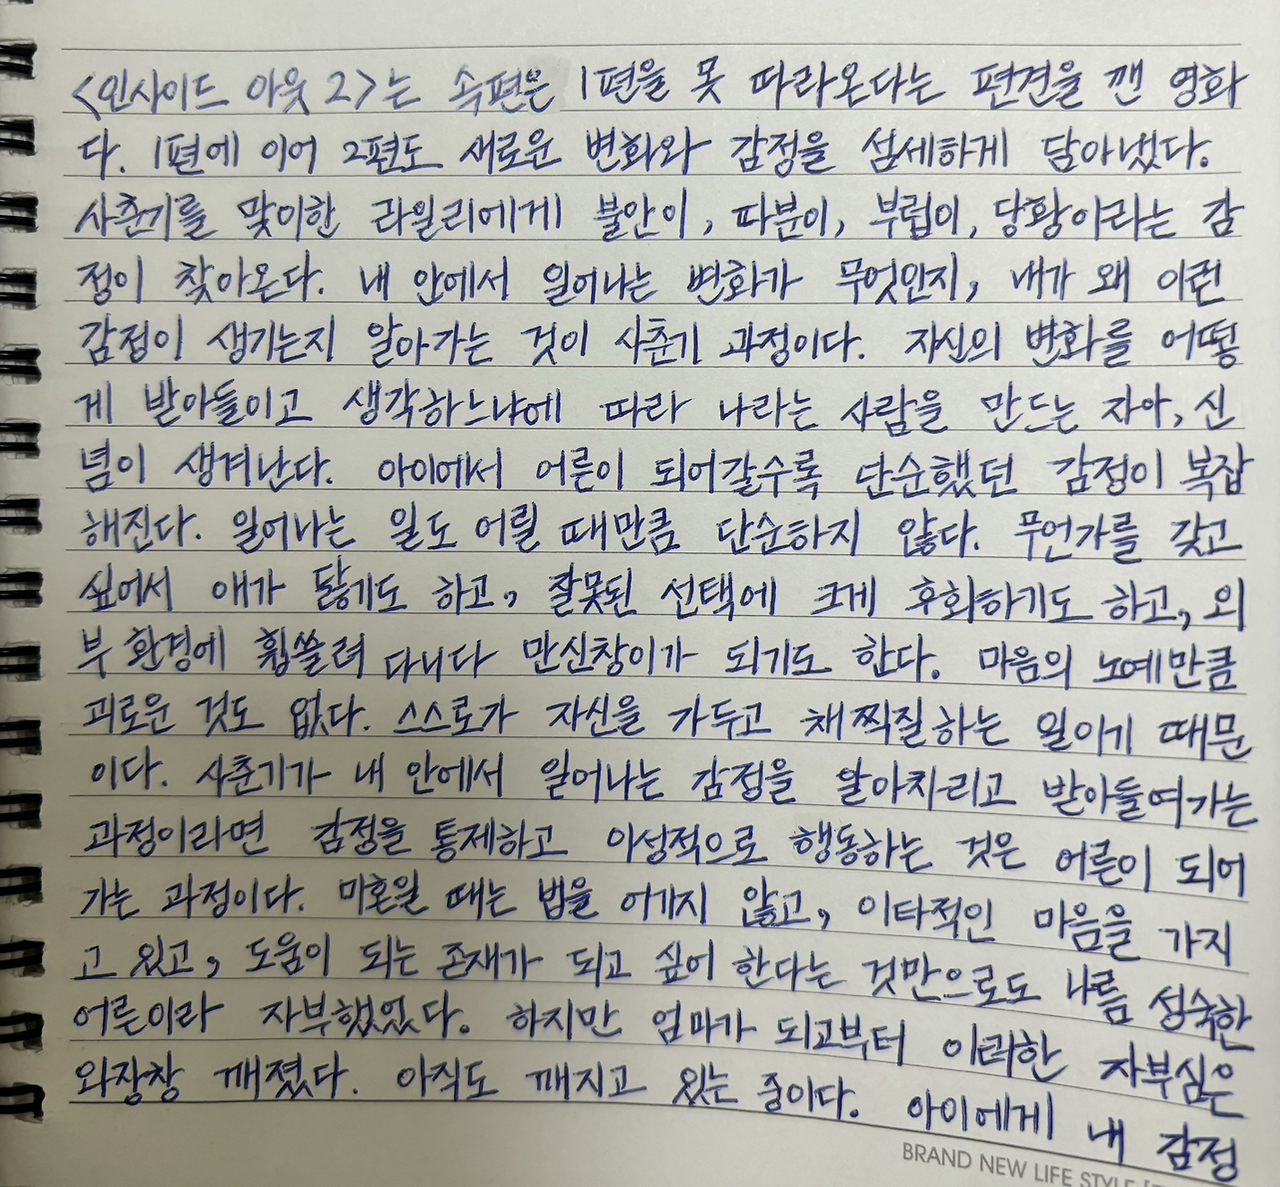 <인사이드 아웃 2>는 속편은 1편을 못 따라온다는 편견을 깬 영화
다. 1편에 이어 2편도 새로운 변화와 감정을 섬세하게 담아냈다.
사춘기를 맞이한 라일리에게 불안이, 따분이, 부럽이, 당황이라는 감
정이 찾아온다. 내 안에서 일어나는 변화가 무엇인지, 내가 왜 이런
감정이 생기는지 알아가는 것이 사춘기 과정이다. 자신의 변화를 어떻
게 받아들이고 생각하느냐에 따라 나라는 사람을 만드는 자아, 신
념이 생겨난다. 아이에서 어른이 되어갈수록 단순했던 감정이 복잡
해진다. 일어나는 일도 어릴 때만큼 단순하지 않다. 무언가를 갖고
싶어서 애가 닳기도 하고, 잘못된 선택에 크게 후회하기도 하고, 외
부 환경에 휩쓸려 다니다 만신창이가 되기도 한다. 마음의 노예만큼
괴로운 것도 없다. 스스로가 자신을 가두고 채찍질하는 일이기 때문
이다. 사춘기가 내 안에서 일어나는 감정을 알아차리고 받아들여가는
과정이라면 감정을 통제하고 이성적으로 행동하는 것은 어른이 되어
가는 과정이다. 미혼일 때는 법을 어기지 않고, 이타적인 마음을 가지
고 있고, 도움이 되는 존재가 되고 싶어 한다는 것만으로도 나름 성숙한
어른이라 자부했었다. 하지만 엄마가 되고부터 이러한 자부심은
와장창 깨졌다. 아직도 깨지고 있는 중이다. 아이에게 내 감정
BRAND NEW LIFE STYLE